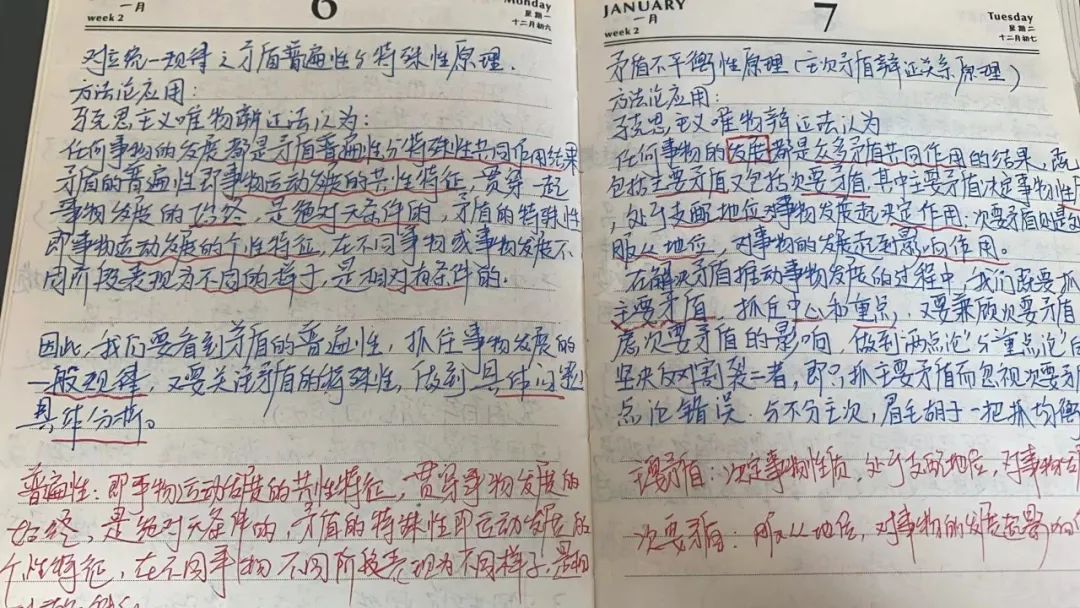 6
一月
week 2
Monday
星期一
十二月初六
对立统一规律之矛盾普遍性与特殊性原理.
方法论应用:
马克思主义唯物辩证法认为:
任何事物的发展都是矛盾普遍性与特殊性共同作用结果
矛盾的普遍性即事物运动发展的共性特征,贯穿一起
事物发展的始终,是绝对无条件的,矛盾的特殊性
即事物运动发展的个性特征,在不同事物或事物发展不
同阶段表现为不同的样子,是相对有条件的.
因此,我们要看到矛盾的普遍性,抓住事物发展的
一般规律,又要关注矛盾的特殊性,做到具体问题
具体分析。
普遍性:即事物运动发展的共性特征,贯穿事物发展的
始终,是绝对无条件的,矛盾的特殊性即运动发展的
个性特征,在不同事物不同阶段表现为不同样子,是相
JANUARY
一月
week 2
7
Tuesday
星期二
十二月初七
矛盾不平衡性原理(主次矛盾辩证关系原理)
方法论应用:
马克思主义唯物辩证法认为
任何事物的发展都是众多矛盾共同作用的结果,既
包括主要矛盾又包括次要矛盾,其中主要矛盾决定事物性
,处于支配地位对事物发展起决定作用;次要矛盾则是处
服从地位,对事物的发展起到影响作用。
在解决矛盾推动事物发展的过程中,我们既要抓
主要矛盾,抓住中心和重点,又要兼顾次要矛盾
虑次要矛盾的影响,做到“两点论”与“重点论”的
坚决反对割裂二者,即只抓主要矛盾而忽视次要矛
点论错误.与不分主次,眉毛胡子一把抓均衡
主要矛盾:决定事物性质,处于支配地位,对事物发
次要矛盾:服从地位,对事物的发展起影响